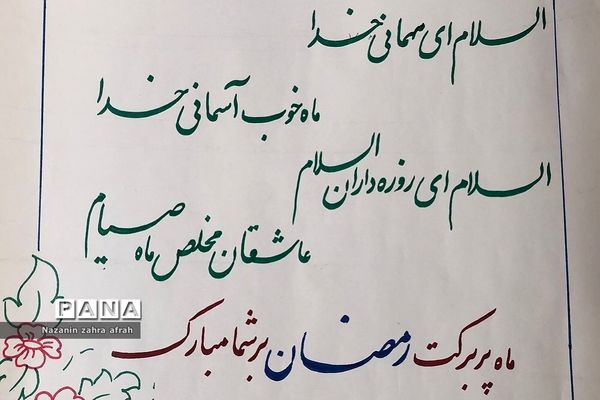 السلام ای مهمانی خدا
ماه خوب آسمانی خدا
السلام ای روزه داران السلام
عاشقان مخلص ماه صیام
ماه پر برکت رمضان بر شما مبارک
PANA
Nazanin zahra afrah